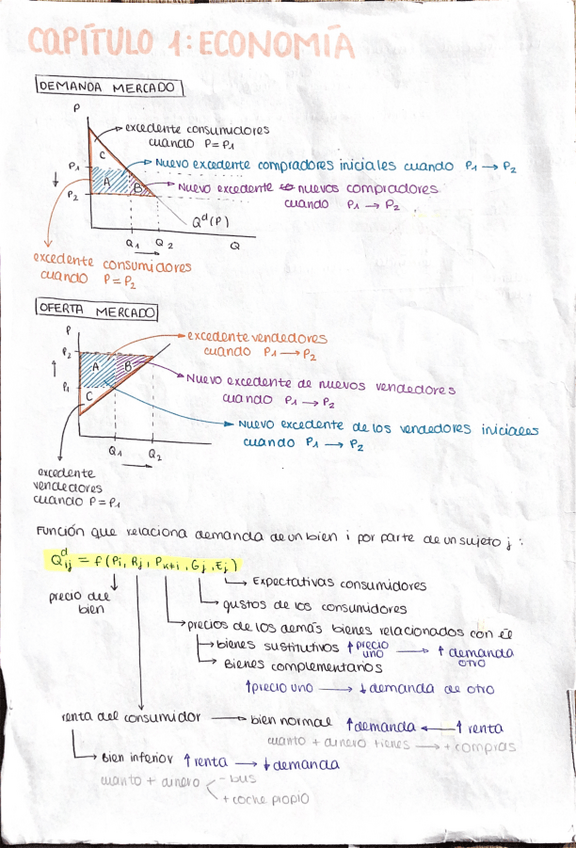 CAPÍTULO 1: ECONOMÍA
DEMANDA MERCADO
P
excedente consumidores
cuando P=P₁
C
Nuevo excedente compradores iniciales cuando P₁ → P₂
P₁
A
B
Nuevo excedente nuevos compradores
cuando P₁ → P₂
P₂
Qᵈ(P)
Q₁ → Q₂
Q
excedente consumidores
cuando P=P₂
OFERTA MERCADO
P
excedente vendedores
cuando P₁ → P₂
P₂
A
B
Nuevo excedente de nuevos vendedores
cuando P₁ → P₂
P₁
C
Nuevo excedente de los vendedores iniciales
cuando P₁ → P₂
Q₁ → Q₂
excedente
vendedores
cuando P=P₁
Función que relaciona demanda de un bien i por parte de un sujeto j:
Qᵈij = f(Pi, Rj, Pk≠i, Gj, Ej)
Expectativas consumidores
precio del
bien
gustos de los consumidores
precios de los demás bienes relacionados con él
bienes sustitutivos ↑ precio uno → ↑ demanda otro
Bienes complementarios
↑ precio uno → ↓ demanda de otro
renta del consumidor → bien normal ↑ demanda ← ↑ renta
cuanto + dinero tienes → + compras
Bien inferior ↑ renta → ↓ demanda
cuanto + dinero
- bus
+ coche propio